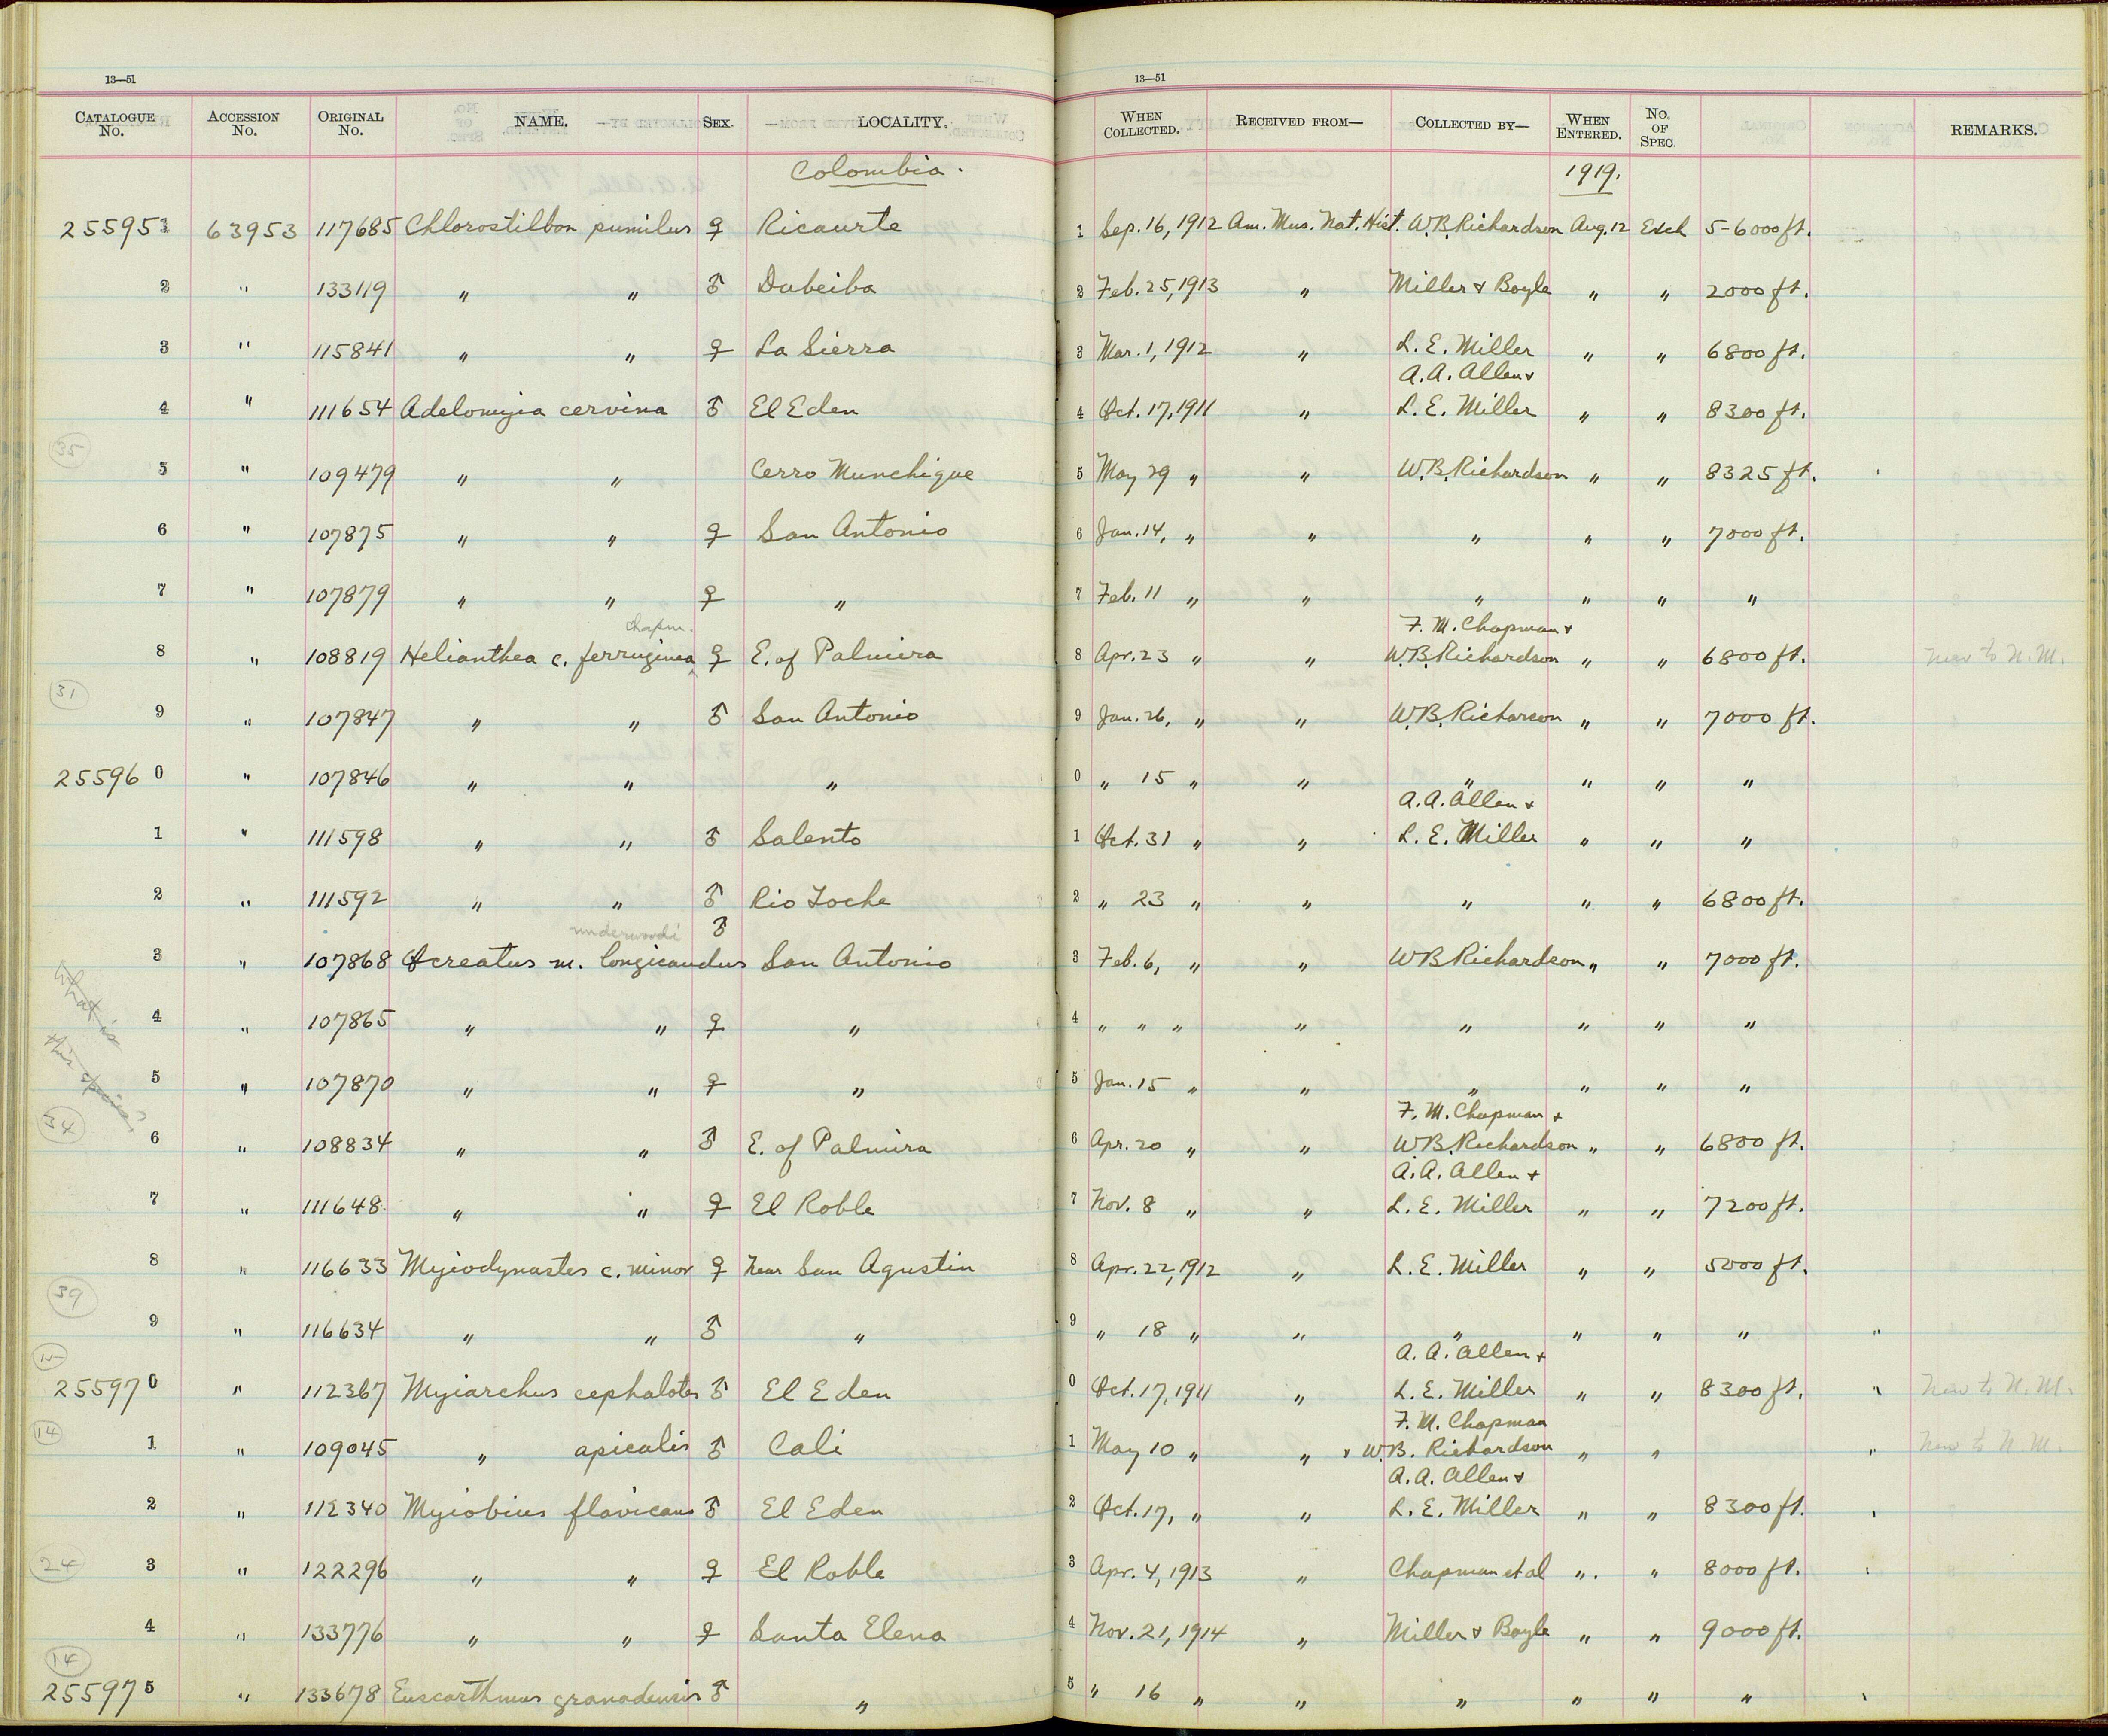 13—51
13—51
CATALOGUE No. ACCESSION No. ORIGINAL No. NAME. SEX. LOCALITY. WHEN COLLECTED. RECEIVED FROM— COLLECTED BY— WHEN ENTERED. No. OF SPEC. REMARKS.
Colombia. 1919.
255951 63953 117685 Chlorostilbon pumilus ♀ Ricaurte 1 Sep. 16, 1912 Am. Mus. Nat. Hist. W.B. Richardson Aug. 12 Exch 5-6000 ft.
2 " 133119 " " ♂ Dabeiba 2 Feb. 25, 1913 " Miller & Boyle " " 2000 ft.
3 " 115841 " " ♀ La Sierra 3 Mar. 1, 1912 " L. E. Miller " " 6800 ft.
A. A. Allen &
4 " 111654 Adelomyia cervina ♂ El Eden 4 Oct. 17, 1911 " L. E. Miller " " 8300 ft.
35
5 " 109479 " " Cerro Munchique 5 May 29 " " W.B. Richardson " " 8325 ft.
6 " 107875 " " ♀ San Antonio 6 Jan. 14, " " " " " 7000 ft.
7 " 107879 " " ♀ " 7 Feb. 11 " " " " " "
Chapm. F. M. Chapman &
8 " 108819 Helianthea c. ferruginea ♀ E. of Palmira 8 Apr. 23 " " W.B. Richardson " " 6800 ft. New to N. M.
31
9 " 107847 " " ♂ San Antonio 9 Jan. 26, " " W.B. Richarson " " 7000 ft.
255960 " 107846 " " " 0 " 15 " " " " " "
A. A. Allen &
1 " 111598 " " ♂ Salento 1 Oct. 31 " " L. E. Miller " " "
2 " 111592 " " ♂ Rio Toche 2 " 23 " " " " " 6800 ft.
underwoodi ♂
3 " 107868 Ocreatus m. longicaudus San Antonio 3 Feb. 6, " " W B Richardson " " 7000 ft.
What is
4 " 107865 " " ♀ " 4 " " " " " " " "
this species?
5 " 107870 " " ♀ " 5 Jan. 15 " " " " " "
34 F. M. Chapman &
6 " 108834 " " ♂ E. of Palmira 6 Apr. 20 " " W.B. Richardson " " 6800 ft.
A. A. Allen &
7 " 111648 " " ♀ El Roble 7 Nov. 8 " " L. E. Miller " " 7200 ft.
8 " 116633 Myiodynastes c. minor ♀ Near San Agustin 8 Apr. 22, 1912 " L. E. Miller " " 5000 ft.
39
9 " 116634 " " ♂ " 9 " 18 " " " " " " "
A. A. Allen &
255970 " 112367 Myiarchus cephalotes ♂ El Eden 0 Oct. 17, 1911 " L. E. Miller " " 8300 ft. " New to N. M.
14 F. M. Chapman
1 " 109045 " apicalis ♂ Cali 1 May 10 " " & W.B. Richardson " " " New to N. M.
A. A. Allen &
2 " 112340 Myiobius flavicans ♂ El Eden 2 Oct. 17, " " L. E. Miller " " 8300 ft.
24
3 " 122296 " " ♀ El Roble 3 Apr. 4, 1913 " Chapman et al " " 8000 ft.
4 " 133776 " " ♀ Santa Elena 4 Nov. 21, 1914 " Miller & Boyle " " 9000 ft.
14
255975 " 133678 Euscarthmus granadensis ♂ " 5 " 16 " " " " " "